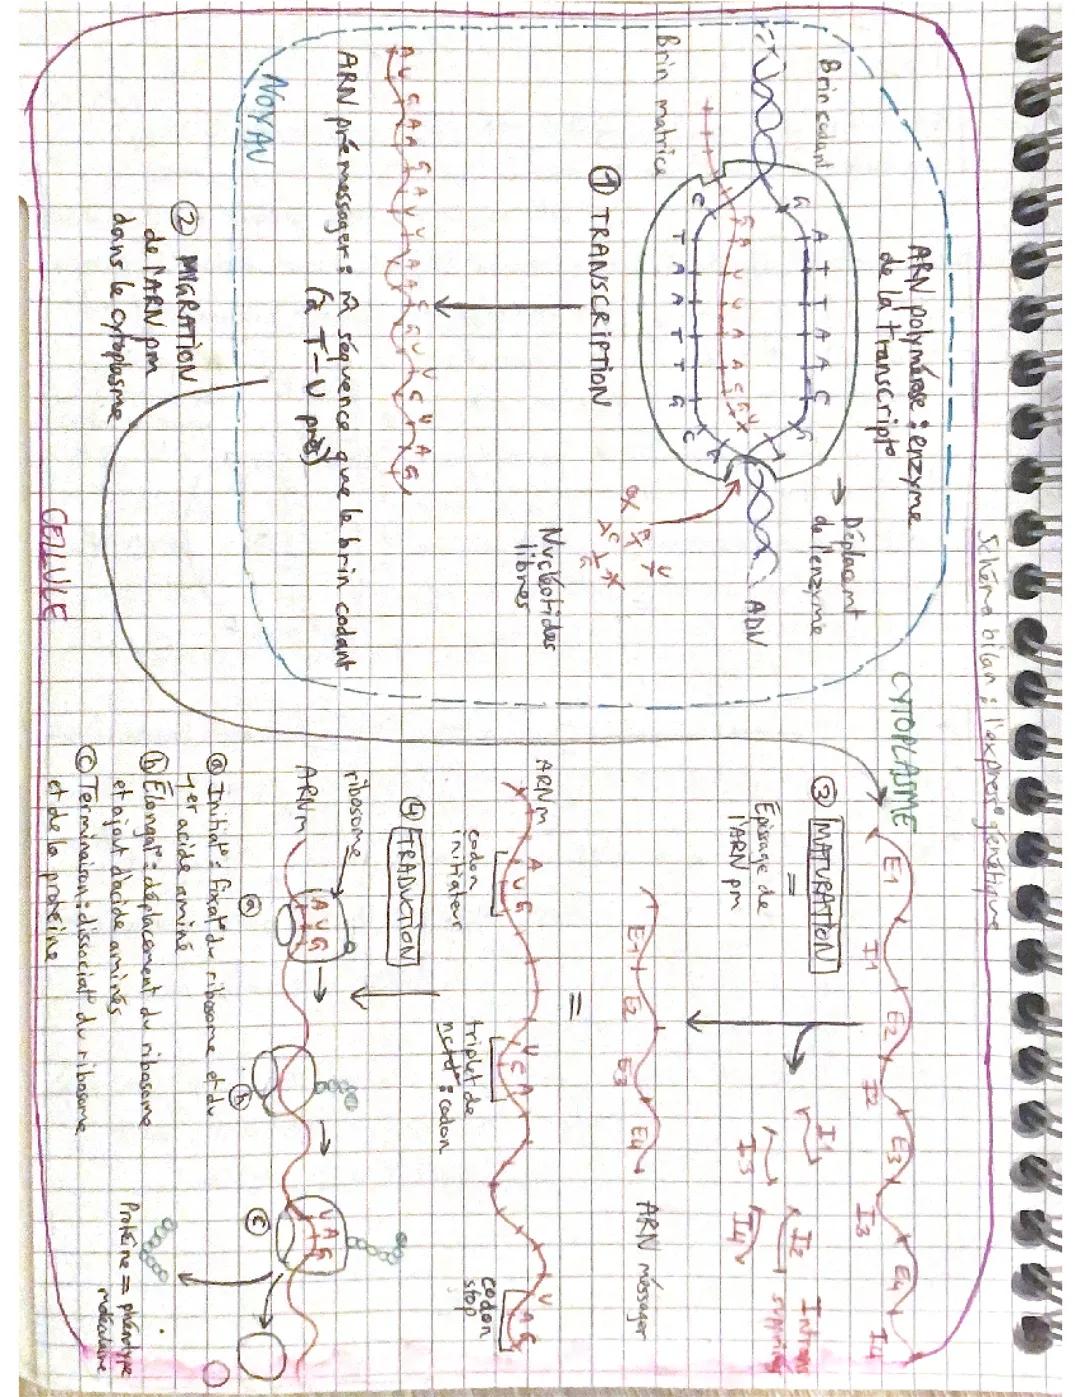 Schéma bilan : l'express° génétique
CYTOPLASME
ARN polymérase : enzyme
de la transcript°
→ Déplacmt
de l'enzyme
Brin codant
G A T T A A C G T
G A U U A A C G U
C T A A T T G C A
Brin matrice
ADN
Nucléotides
libres
① TRANSCRIPTION
ARN prémessager : m̂ séquence que le brin codant
(à T-U près)
NOYAU
② MIGRATION
de l'ARN pm
dans le cytoplasme
CELLULE
E1 I1 E2 I2 E3 I3 E4 I4
③ MATURATION
=
Epissage de
l'ARN pm
I1 I2
I3 I4
Introns
supprimés
E1 E2 E3 E4
ARN messager
=
ARNm
A U G
U C A
U A G
codon
initiateur
triplet de
nctd° : codon
codon
stop
④ TRADUCTION
ribosome
ARNm
A U G
U A G
ⓐ
ⓑ
ⓒ
ⓐ Initiat° : fixat° du ribosome et du
1er acide aminé
ⓑ Élongat° : déplacement du ribosome
et ajout d'acide aminés
ⓒ Terminaison : dissociat° du ribosome
et de la protéine
Protéine = phénotype
moléculaire